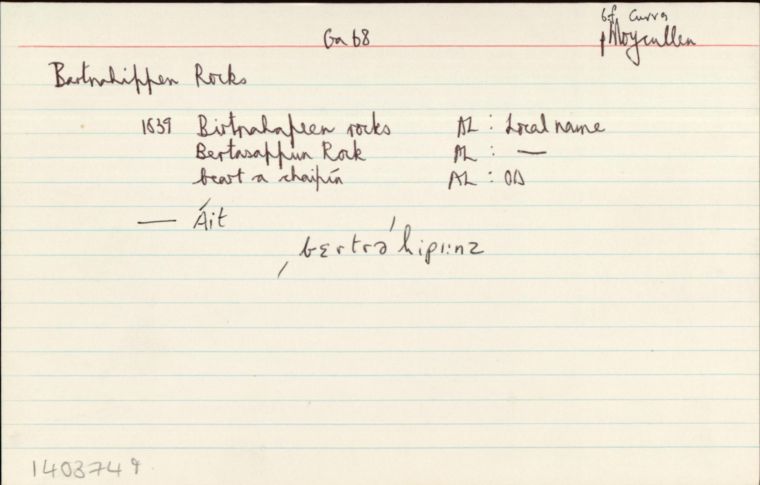 Ga 68
bf Curra
p Moycullen
Bartnahippen Rocks
1839 Birtnahapeen rocks AL : Local name
Bertasappun Rock AL : —
beart a chaipín AL : OD
— Áit
ˌbɛrtrəˈhipiːnz
1403749